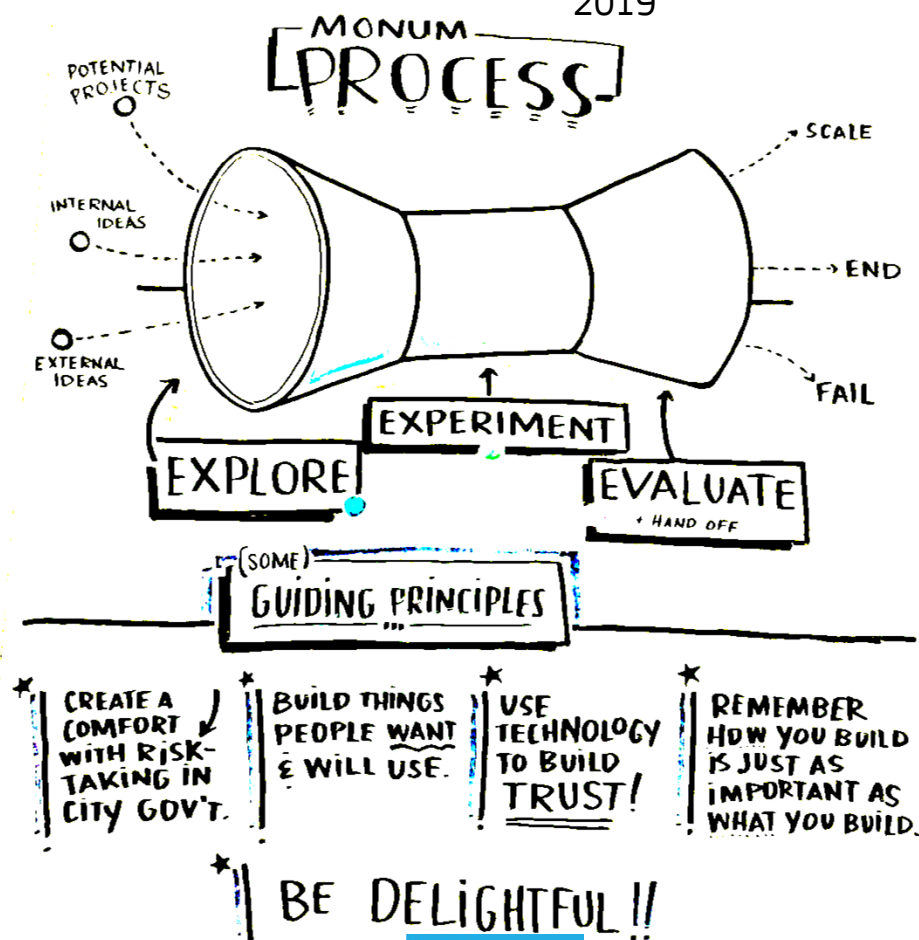 2019
MONUM
PROCESS
POTENTIAL
PROJECTS
INTERNAL
IDEAS
EXTERNAL
IDEAS
SCALE
END
FAIL
EXPLORE
EXPERIMENT
EVALUATE
+ HAND OFF
(SOME)
GUIDING PRINCIPLES
CREATE A
COMFORT
WITH RISK-
TAKING IN
CITY GOV'T.
BUILD THINGS
PEOPLE WANT
& WILL USE.
USE
TECHNOLOGY
TO BUILD
TRUST!
REMEMBER
HOW YOU BUILD
IS JUST AS
IMPORTANT AS
WHAT YOU BUILD.
BE DELIGHTFUL!!